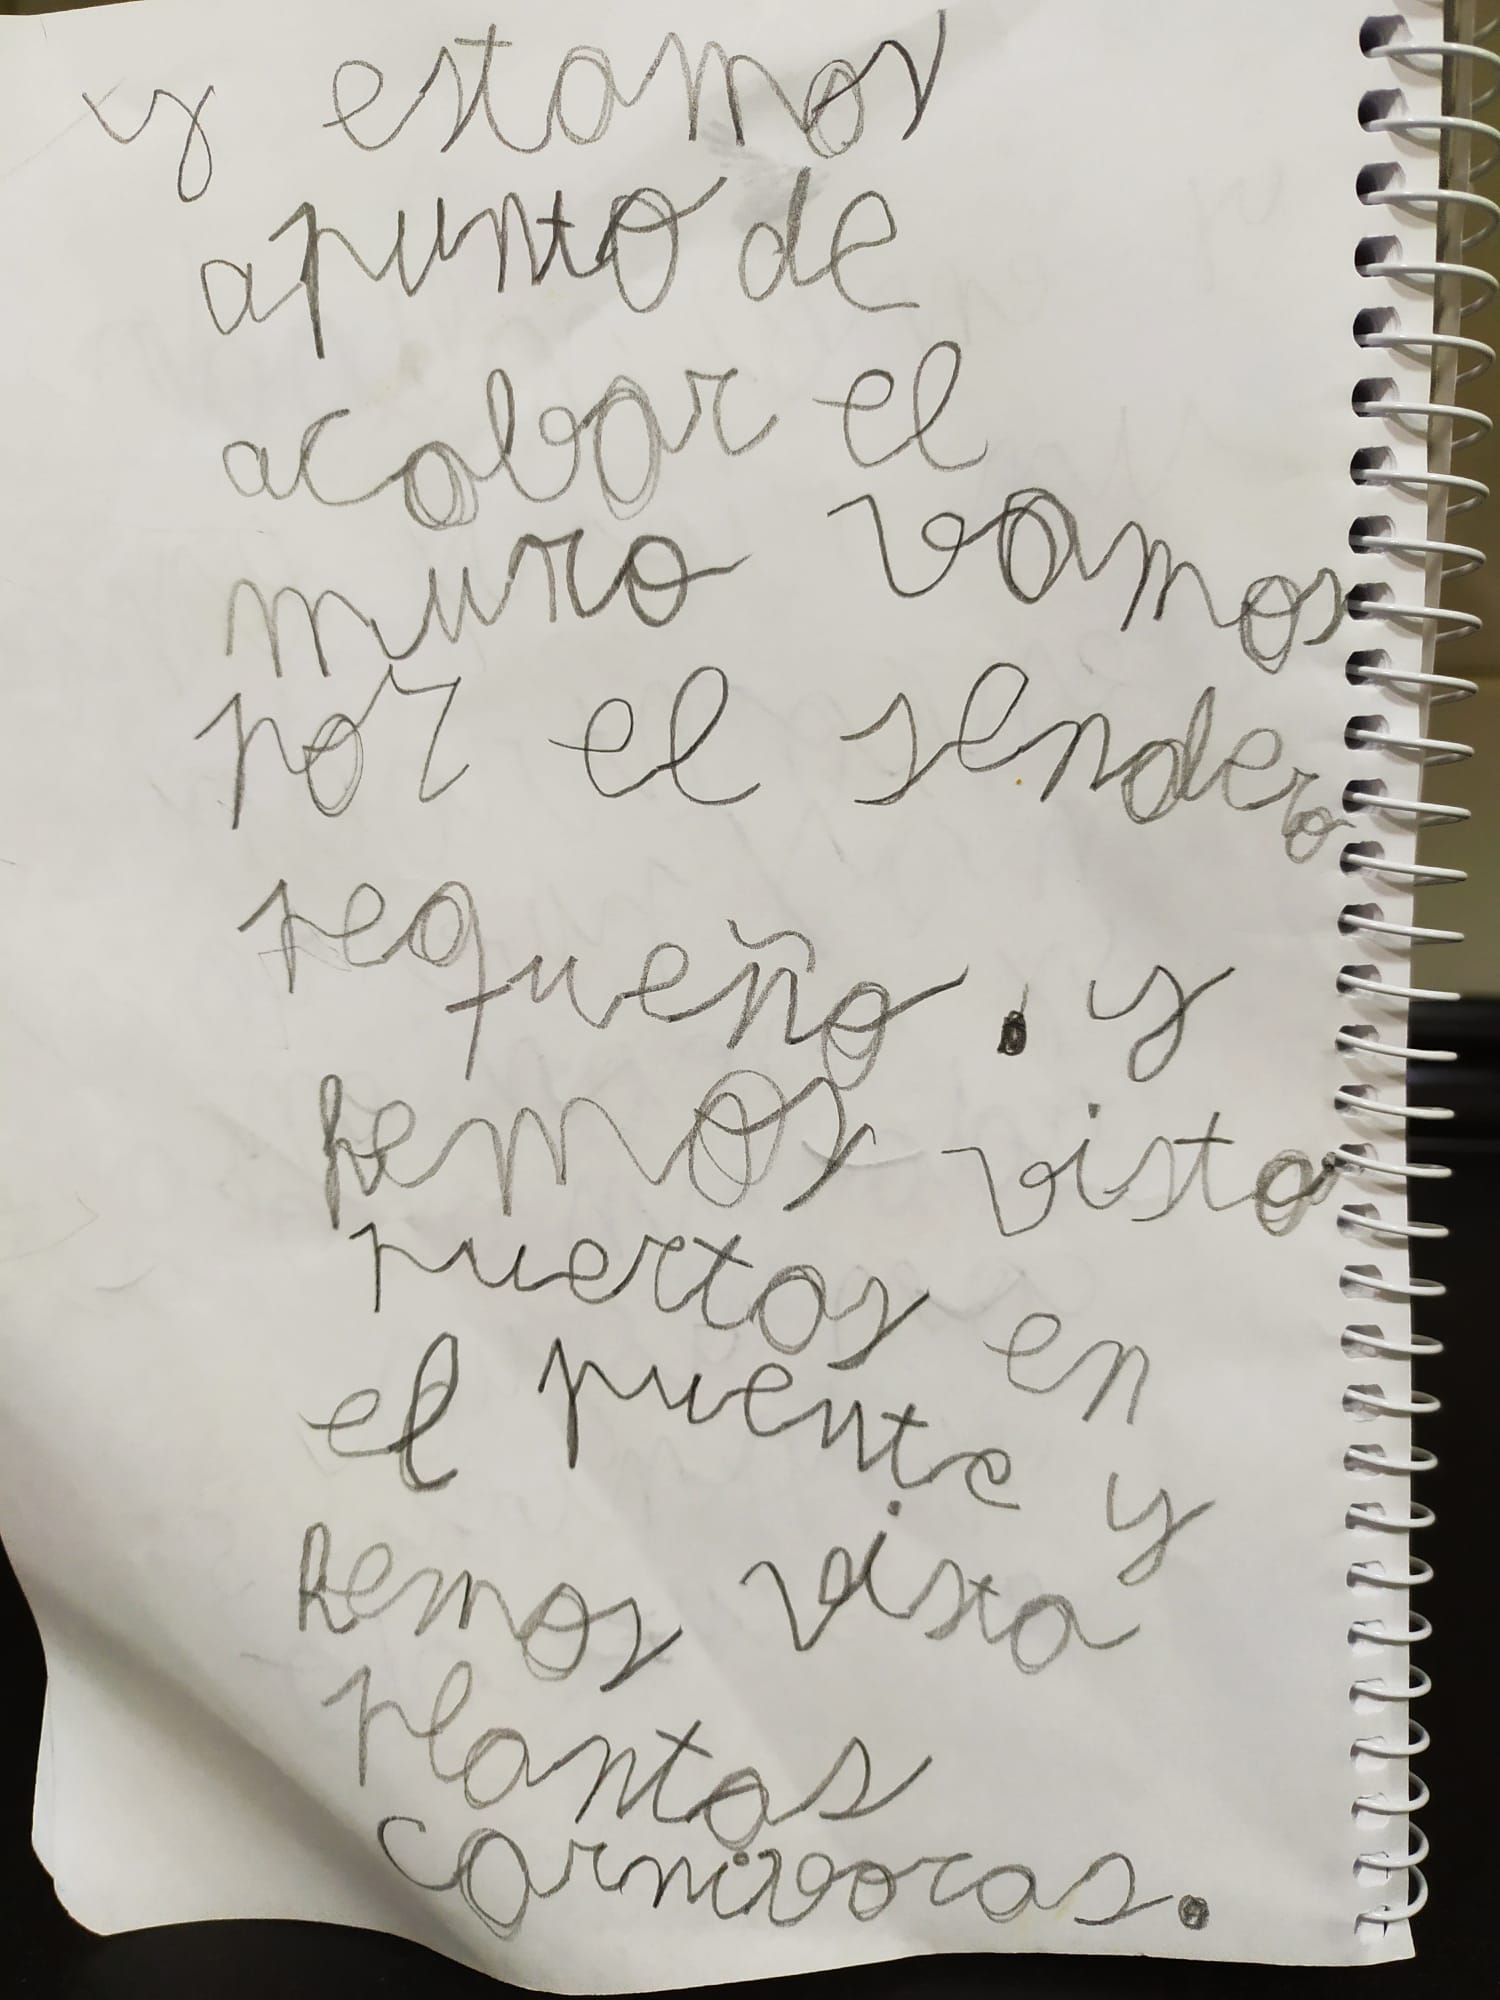 y estamos
apunto de
acabar el
muro vamos
por el sendero
pequeño. y
hemos visto
puertas en
el puente y
hemos visto
plantas
carnivoras.